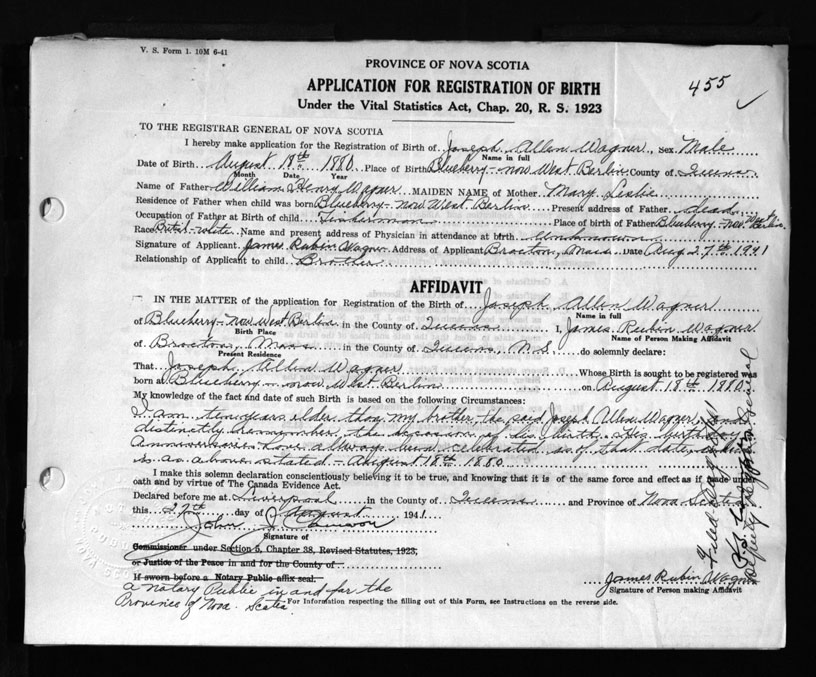 V. S. Form 1. 10M 6-41
PROVINCE OF NOVA SCOTIA
455 ✓
APPLICATION FOR REGISTRATION OF BIRTH
Under the Vital Statistics Act, Chap. 20, R. S. 1923
TO THE REGISTRAR GENERAL OF NOVA SCOTIA
I hereby make application for the Registration of Birth of Joseph Allen Wagner, sex Male
Name in full
Date of Birth August 18th 1880 Place of Birth Blueberry - now West Berlin County of Queens
Month Date Year
Name of Father William Henry Wagner MAIDEN NAME of Mother Mary Leslie
Residence of Father when child was born Blueberry - now West Berlin Present address of Father dead
Occupation of Father at Birth of child Place of birth of Father Blueberry - now West Berlin
Race Brit. - white Name and present address of Physician in attendance at birth Unknown
Signature of Applicant James Rubin Wagner Address of Applicant Brocton, Mass Date Aug 27th 1941
Relationship of Applicant to child Brother
AFFIDAVIT
IN THE MATTER of the application for Registration of the Birth of Joseph Allen Wagner
Name in full
of Blueberry - now West Berlin in the County of Queens I, James Rubin Wagner
Birth Place Name of Person Making Affidavit
of Brocton, Mass in the County of Queens, N.S. do solemnly declare:
Present Residence
That Joseph Allen Wagner Whose Birth is sought to be registered was
born at Blueberry - now West Berlin on August 18th 1880
My knowledge of the fact and date of such Birth is based on the following Circumstances:
I am ten years older than my brother the said Joseph Allen Wagner, and
distinctly remember the occasion of his birth. His birthday
anniversaries have always been celebrated as of that date, which
is as above stated - August 18th 1880
I make this solemn declaration conscientiously believing it to be true, and knowing that it is of the same force and effect as if made under
oath and by virtue of The Canada Evidence Act.
Declared before me at Liverpool in the County of Queens and Province of Nova Scotia
this 27th day of August 1941
John J. Cameron
Signature of
Commissioner under Section 5, Chapter 38, Revised Statutes, 1923,
or Justice of the Peace in and for the County of
If sworn before a Notary Public affix seal.
James Rubin Wagner
Signature of Person making Affidavit
a Notary Public in and for the
Province of Nova Scotia
For Information respecting the filling out of this Form, see Instructions on the reverse side.
Filed
Deputy Registrar General